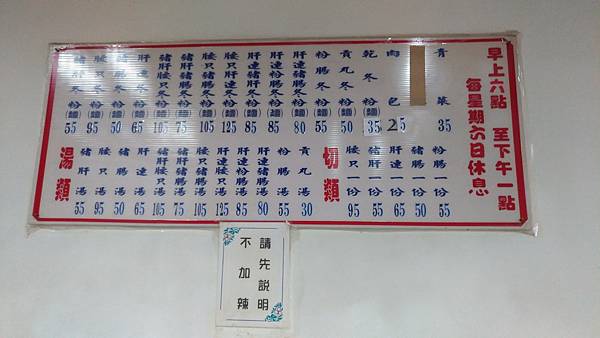 早上六點 至下午一點
每星期六日休息
青菜 35
肉包 25
乾冬粉(麵) 35
貢丸冬粉(麵) 50
粉腸冬粉(麵) 55
肝連豬腸冬粉(麵) 80
肝連粉腸冬粉(麵) 85
肝連豬肝冬粉(麵) 85
腰只肝連冬粉(麵) 125
腰只豬腸冬粉(麵) 105
豬肝豬腸冬粉(麵) 75
豬肝腰只冬粉(麵) 105
肝連冬粉(麵) 65
豬腸冬粉(麵) 50
腰只冬粉(麵) 95
豬肝冬粉(麵) 55
粉腸一份 55
豬腸一份 50
肝連一份 65
豬肝一份 55
腰只一份 95
切類
貢丸湯 30
粉腸湯 55
肝連豬腸湯 80
肝連粉腸湯 85
腰只肝連湯 125
腰只豬腸湯 105
豬肝豬腸湯 75
豬肝腰只湯 105
肝連湯 65
豬腸湯 50
腰只湯 95
豬肝湯 55
湯類
請先說明
不加辣